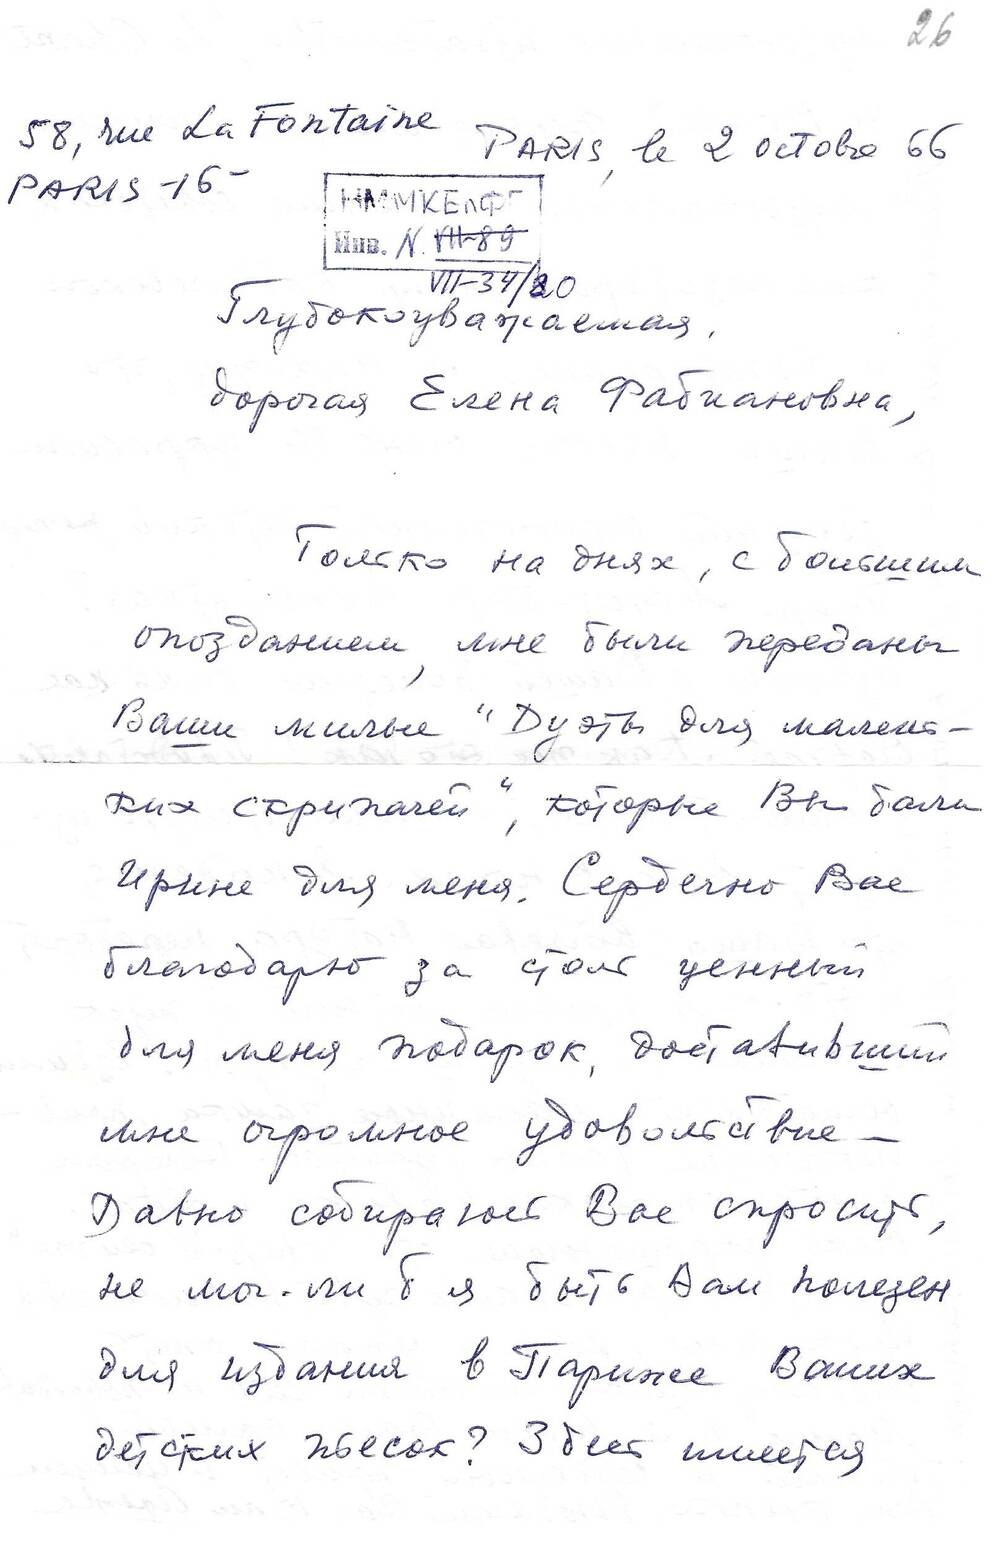 26
58, rue La Fontaine
PARIS, le 2 octobre 66
PARIS-16-
НММКЕлФГ
Инв. N. VII-89
VII-34/20
Глубокоуважаемая,
дорогая Елена Фабиановна,
Только на днях, с большим
опозданием, мне были переданы
Ваши милые "Дуэты для малень-
ких скрипачей", которые Вы дали
Ирине для меня. Сердечно Вас
благодарю за столь ценный
для меня подарок, доставивший
мне огромное удовольствие –
Давно собираюсь Вас спросить,
не мог-ли б я быть Вам полезен
для издания в Париже Ваших
детских пьесок? Здесь имеется